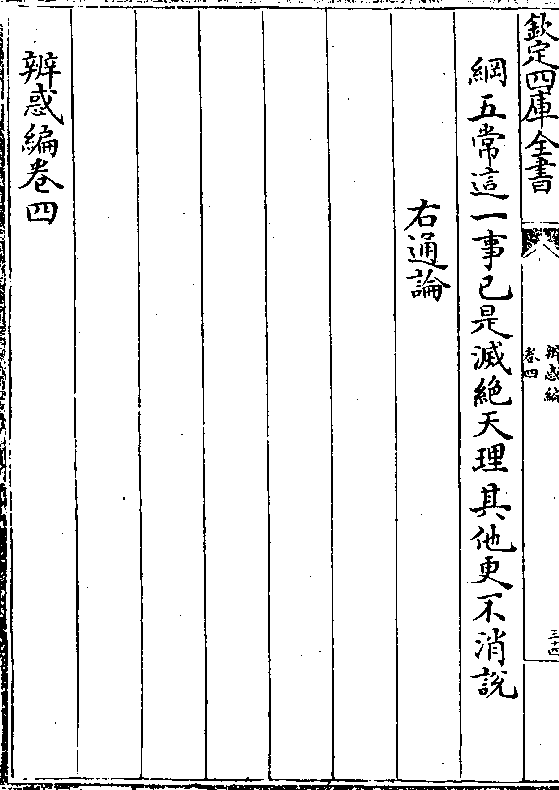 欽定四庫全書
辨惑編
卷四
三十四
綱五常這一事已是滅絶天理其他更不消說
右通論
辨惑編卷四